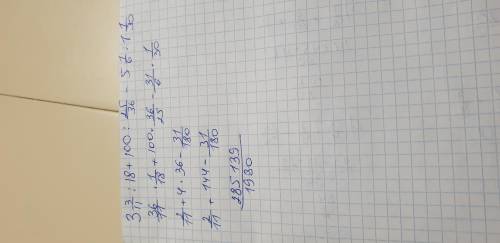 3 3/11 : 18 + 100 : 25/36 - 5 1/6 : 1 1/30
36/11 · 1/18 + 100 · 36/25 - 31/6 · 1/30
2/11 + 4 · 36 - 31/180
2/11 + 144 - 31/180
285139/1980